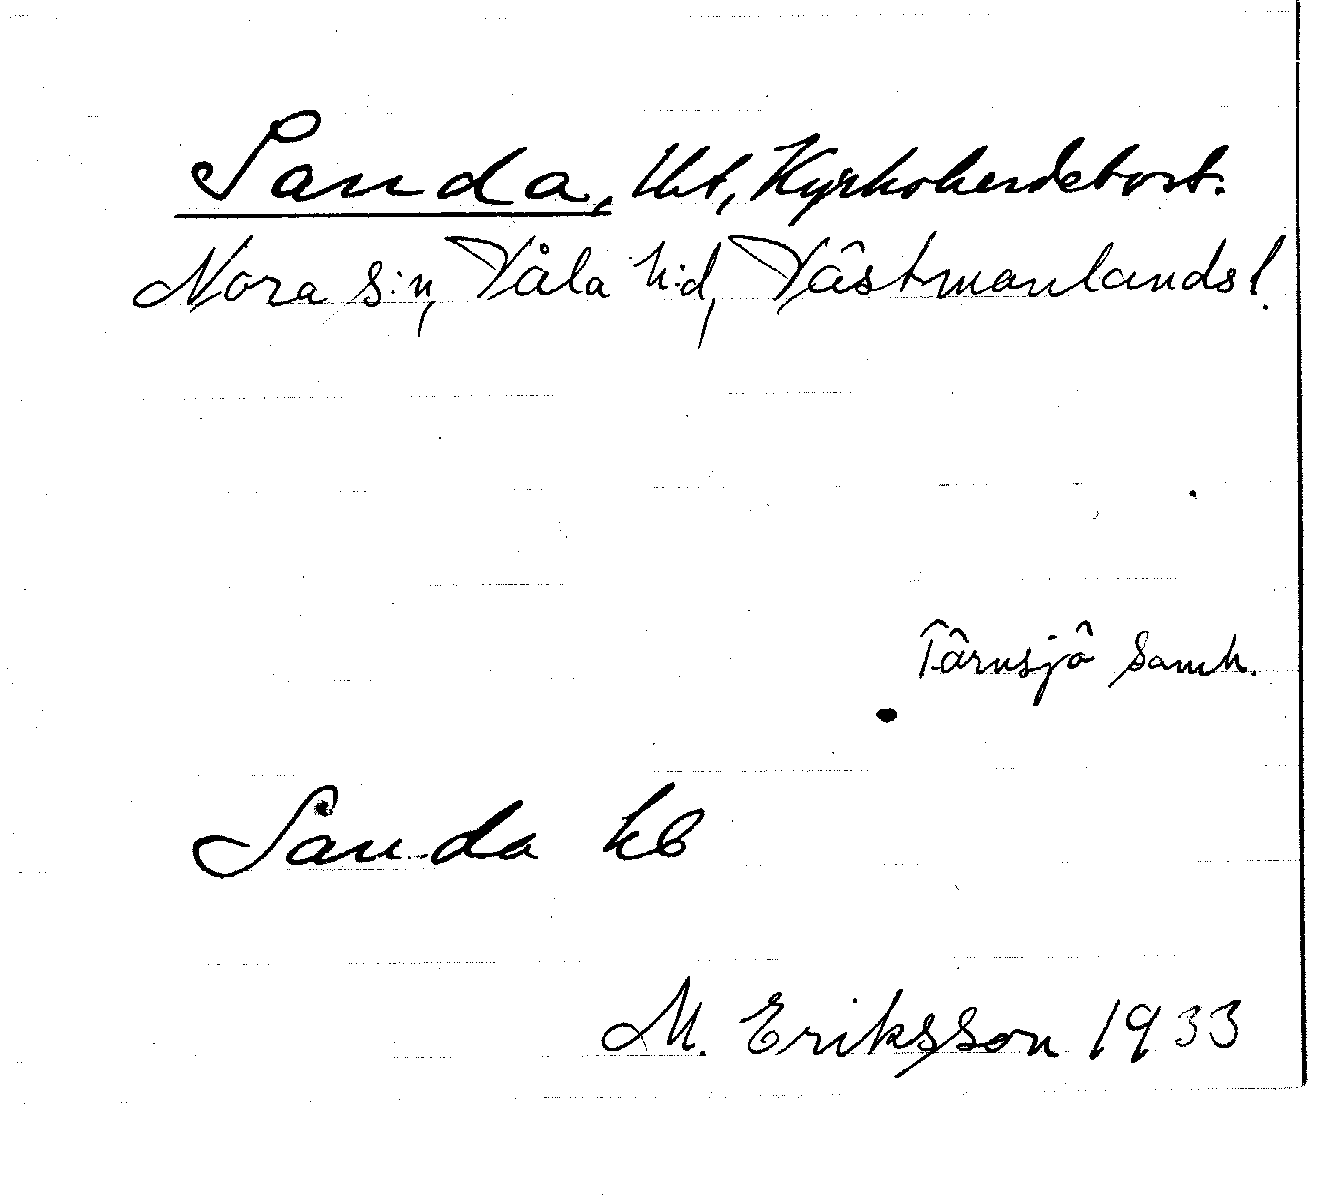 Sanda, Hst, Kyrkoherdebost.
Nora s:n, Våla h:d, Västmanlands l.
Tärnsjö samh.
Sanda kb
M. Eriksson 1933